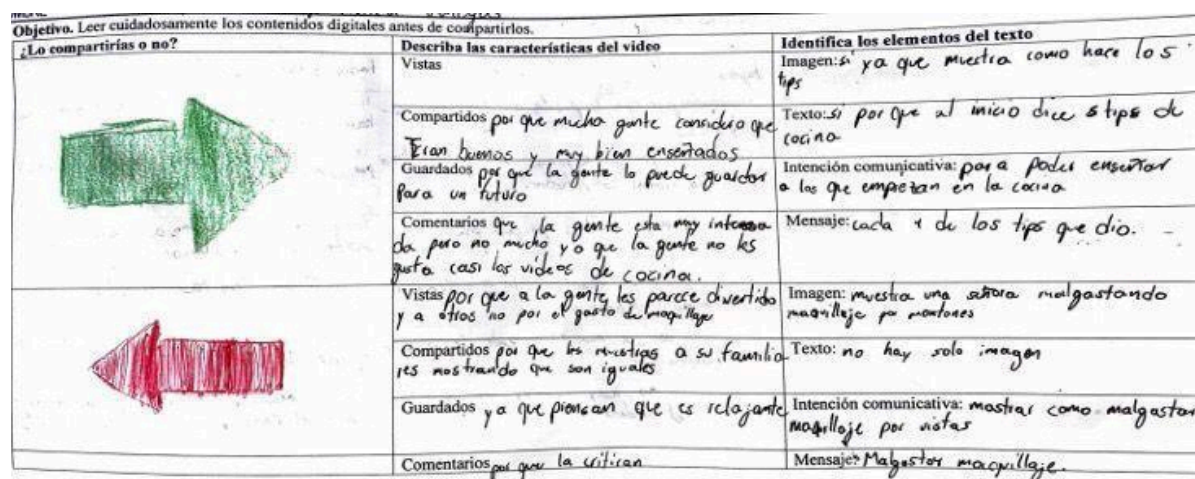 Objetivo. Leer cuidadosamente los contenidos digitales antes de compartirlos.
¿Lo compartirías o no?
Describa las características del video
Identifica los elementos del texto
Vistas
Imagen: si ya que muestra como hace los 5
tips
Compartidos por que mucha gente considero que
Eran buenos y muy bien enseñados
Texto: si por que al inicio dice 5 tips de
cocina
Guardados por que la gente lo puede guardar
Para un futuro
Intención comunicativa: para poder enseñar
a los que empiezan en la cocina
Comentarios que la gente esta muy interesa
da pero no mucho ya que la gente no les
gusta casi los videos de cocina.
Mensaje: cada 1 de los tips que dio.
Vistas por que a la gente les parece divertido
y a otros no por el gasto de maquillaje
Imagen: muestra una señora malgastando
maquillaje por montones
Compartidos por que les muestras a su familia
res mostrando que son iguales
Texto: no hay solo imagen
Guardados ya que piensan que es relajante
Intención comunicativa: mostrar como malgastar
maquillaje por vistas
Comentarios por que la critican
Mensaje: Malgastar maquillaje.